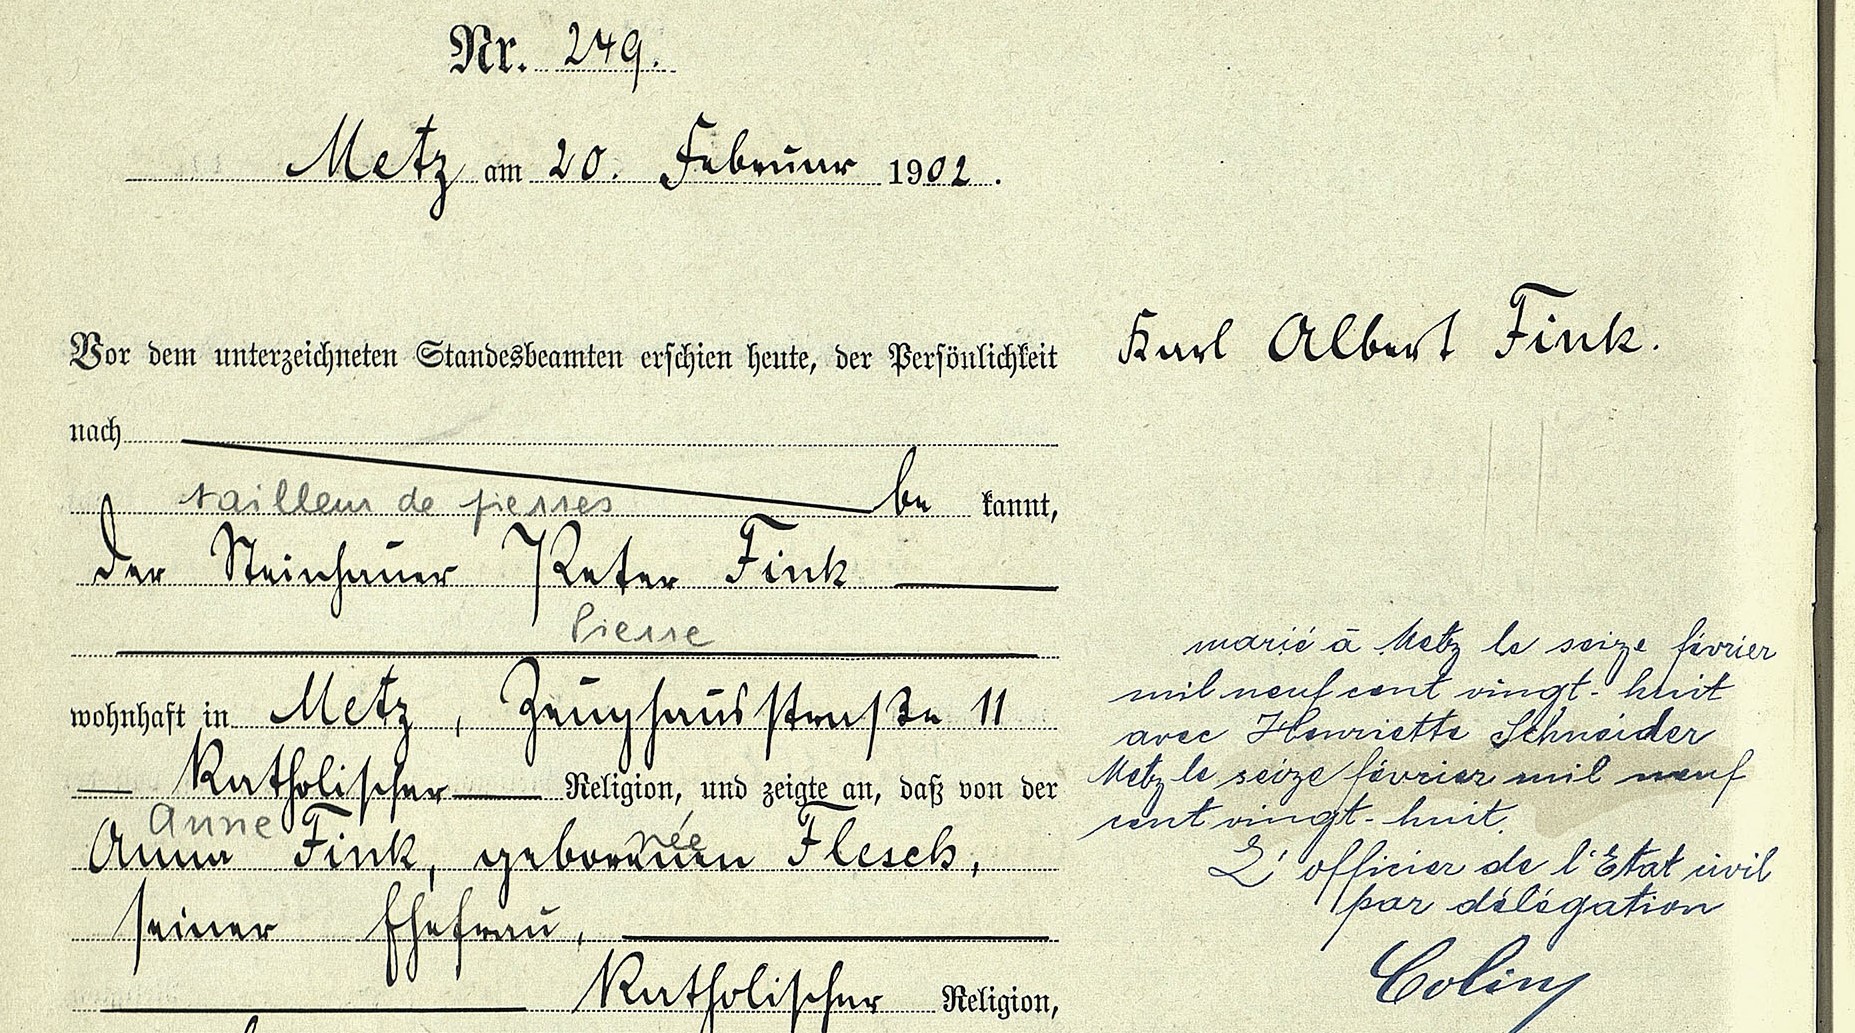 Nr. 249.
Metz am 20. Februar 1902.
Vor dem unterzeichneten Standesbeamten erschien heute, der Persönlichkeit
nach
tailleur de pierres be kannt,
der Steinhauer Peter Fink
Pierre
wohnhaft in Metz, Zeughausstraße 11
Katholischer Religion, und zeigte an, daß von der
Anne née
Anna Fink, geborenen Flesch,
seiner Ehefrau,
Katholischer Religion,
Karl Albert Fink.
marié à Metz le seize février
mil neuf cent vingt-huit
avec Henriette Schneider
Metz le seize février mil neuf
cent vingt-huit.
L'officier de l'Etat civil
par délégation
Colin